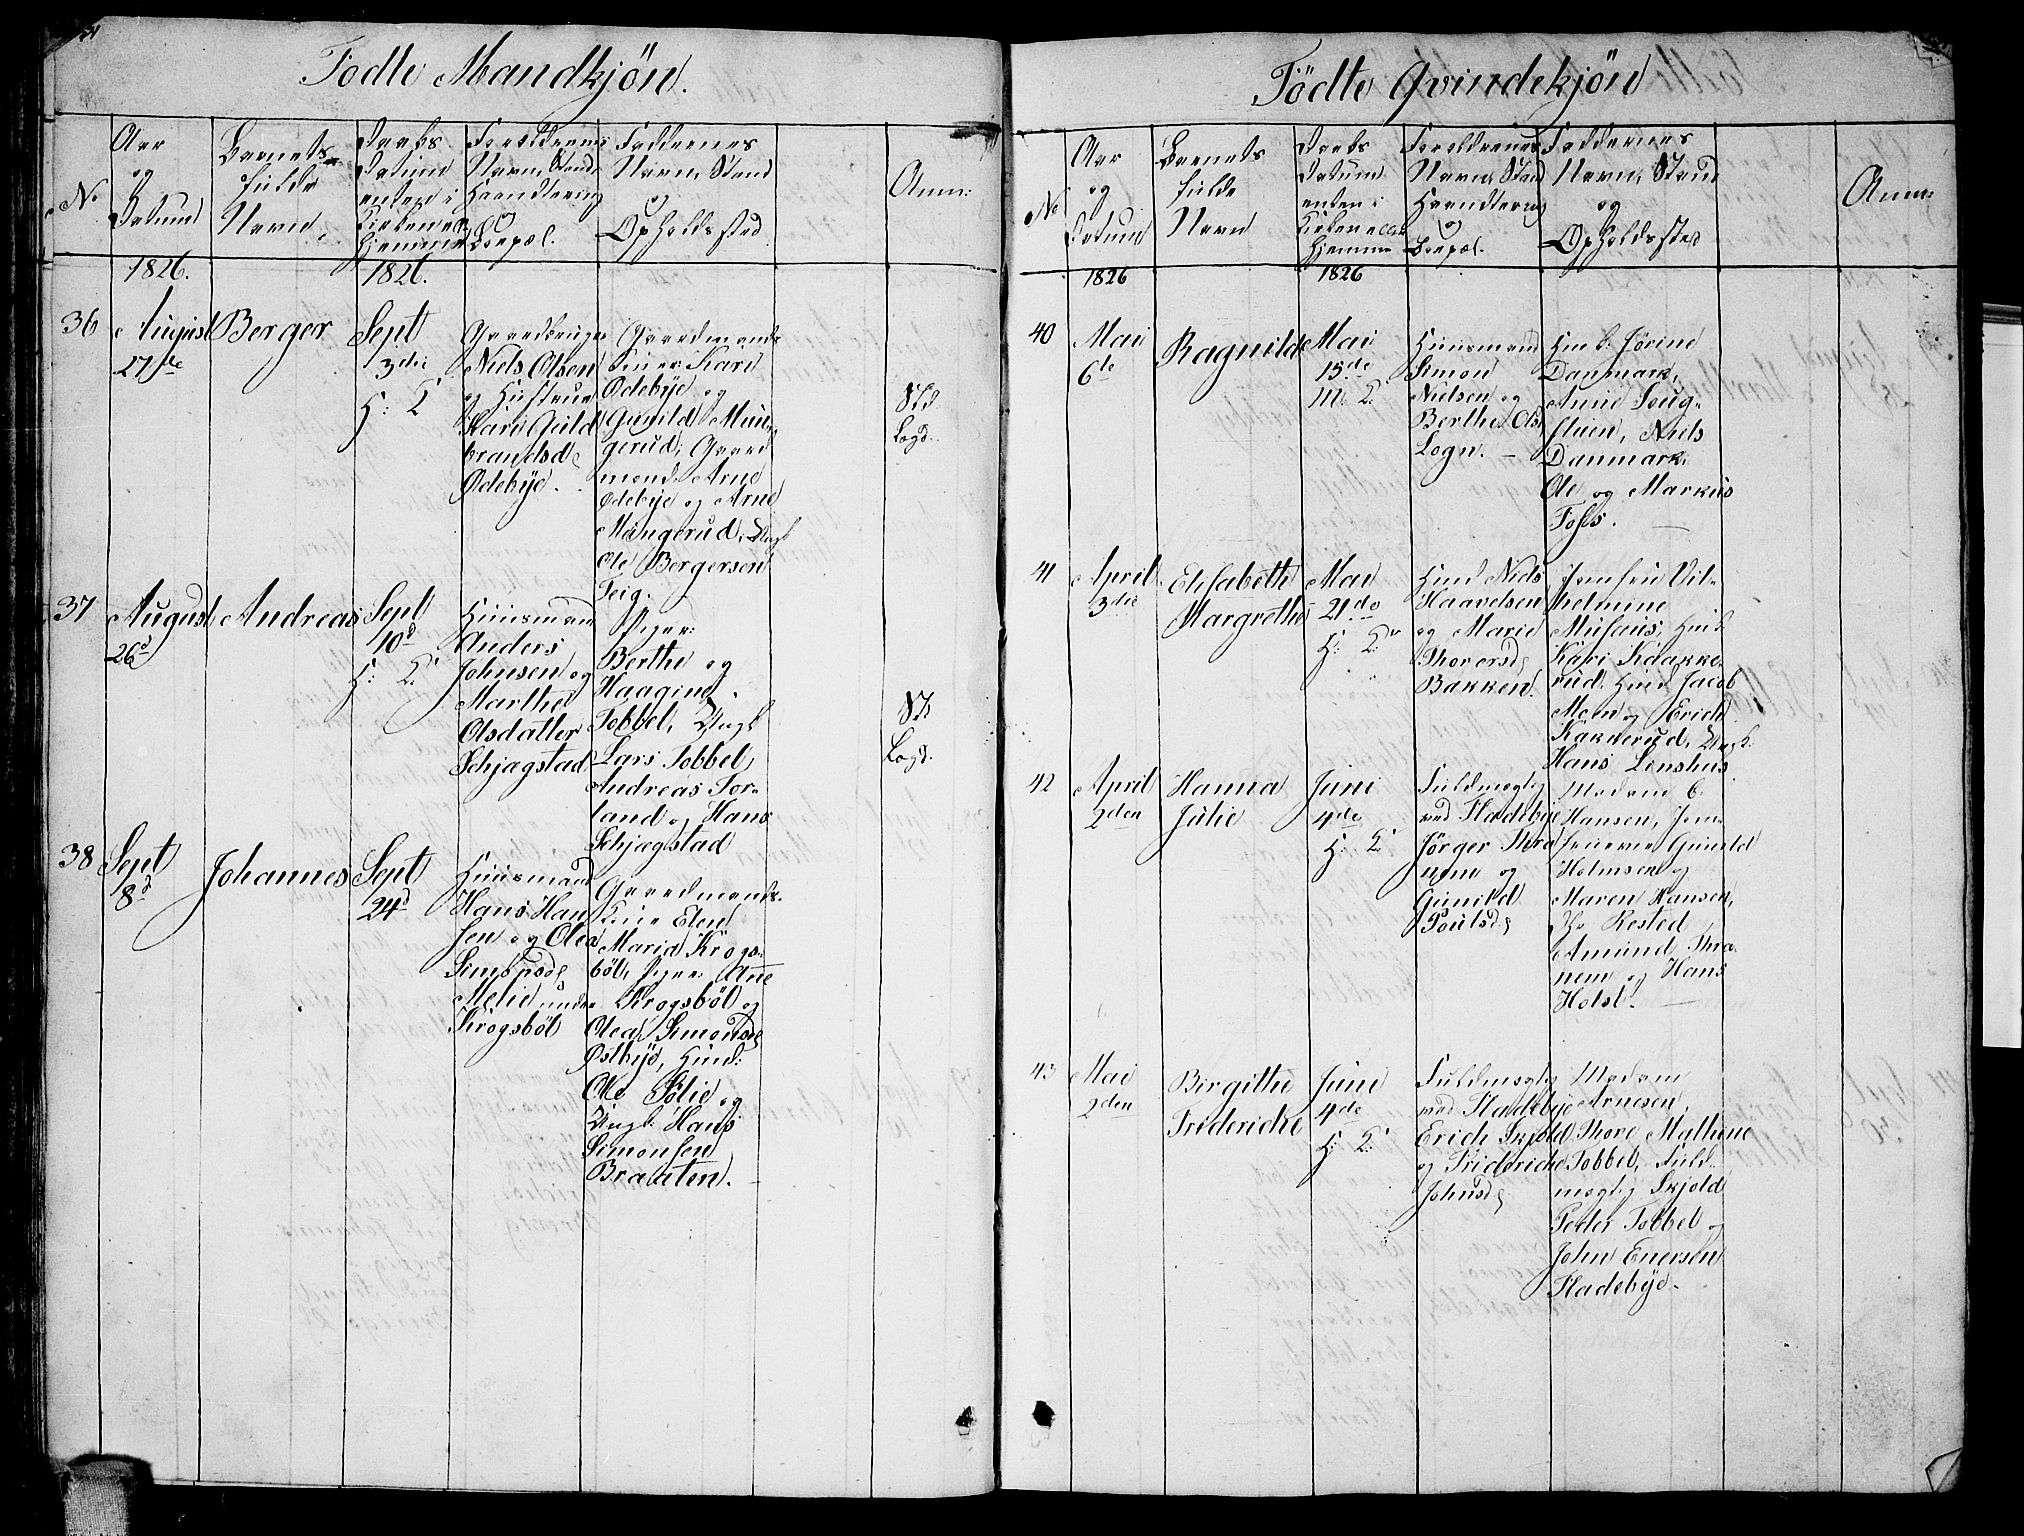 Fødte Mandkjön.
No
Aar
og
Datum
Barnets
fulde
Navn.
Daabs
Datum
enten i
Kirken ell
Hjemme
Forældrenes
Navn, Stand,
Haandtering
og
Boepæl.
Faddernes
Navn, Stand
og
Opholdssted
Anm:
1826.
1826.
36
August
27de
Berger
Sept
3die
H: K
Gaardbruger
Niels Olsen
og Hustrue
Kari Guld
brandsd
Ødebÿe.
Gaardmands
Kari
Ødebÿe og
Gunild Mun-
gerud, Gaard
mænd. Arne
Ødebÿe og Arne
Mangerud, Ungk
Ole Bergersen
Teig.
Std
Logd.
37
August
26d
Andreas
Sept
10d
H: K:
Huusmand
Anders
Johnsen og
Marthe
Olsdatter
Schjagstad
Piger:
Berthe og
Haagine
Tobbel, Ungk
Lars Tobbel,
Andreas Tor-
land og Hans
Schjagstad
St
Logd.
38
Sept
8d
Johannes
Sept
24d
Huusmand
Hans Han
sen og Olea
Simonsd
Melie under
Krogsböl
Gaardmands-
Kone Elen
Maria Krogs-
böl, Piger: Ane
Krogsböl og
Olea Simonsd
Østbÿe, Huusd:
Ole Sölie og
Ungk: Hans
Simonsen
Braaten.
Födte Qvindekjön
No
Aar
og
Datum
Barnets
fulde
Navn
Daabs
Datum
enten i
Kirken eller
Hjemme
Forældrenes
Navn, Stand
Haandtering
og
Boepæl.
Faddernes
Navn, Stand
og
Opholdssted
Anm:
1826
1826
40
Mai
6de
Ragnilde
Mai
15de
M: K:
Huusmand
Simon
Nielsen og
Berthe Ols
Logn.
Huusk: Jörine
Danmark,
Anne Soug-
stuen, Niels
Danmark,
Ole og Markus
Foss.
41
April
3die
Elisabeth
Margrethe
Mai
21de
H: K:
Huusd Niels
Haavelsen
og Marie
Thorersd
Bakken.
Jomfru Vil-
helmine
Musæus, Huusk
Kari Kaakke-
rud. Huusd Jacob
Moen og Erich
Kakkerud, Ungk.
Hans Linshus.
42
April
2den
Hanna
Julie
Juni
4de
H: K:
Fuldmægtig
ved Fladebÿe
Jörger Thra
nem og
Gunild
Poulsd
Madam
Hansen, Jom-
fruerne Gunild
Holmsen og
Maren Hansen,
Hr Rested
Amund Thra-
nem og Hans
Holst.
43
Mai
2den
Birgithe
Frideriche
Juni
4de
H: K:
Fuldmægtig
ved Fladebÿe
Erich Skjold
og Frideriche
Johnsd
Madam
Arnesen,
Thore Mathene
Tobbel, Fuld-
mægtig Skjold
Peder Tobbel og
John Enersen
Fladebÿe.